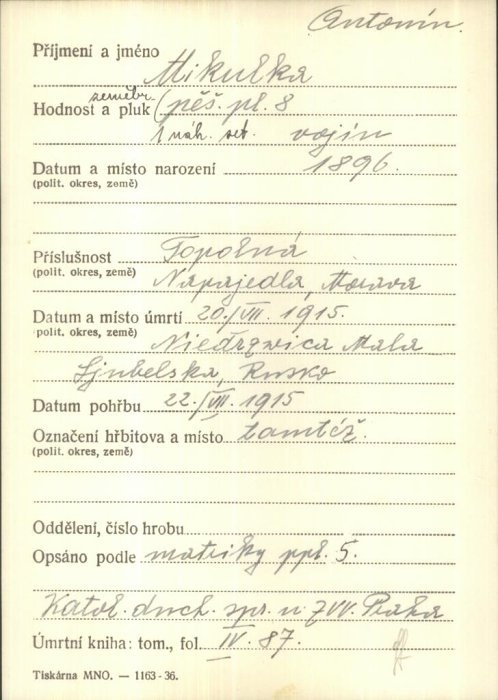 Antonín.
Příjmení a jméno
Mikulka
zeměbr.
Hodnost a pluk (pěš. pl. 8
1 náh. set. vojín
Datum a místo narození 1896.
(polit. okres, země)
Příslušnost Topolná
(polit. okres, země) Napajedla, Morava
Datum a místo úmrtí 20./VII. 1915.
(polit. okres, země) Niedrzwica Mala
Ljubelska, Rusko
Datum pohřbu 22./VII. 1915
Označení hřbitova a místo tamtéž.
(polit. okres, země)
Oddělení, číslo hrobu
Opsáno podle matriky ppl. 5.
Katol. duch. spr. u ZVV. Praha
Úmrtní kniha: tom., fol. IV. 87.
Tiskárna MNO. — 1163-36.